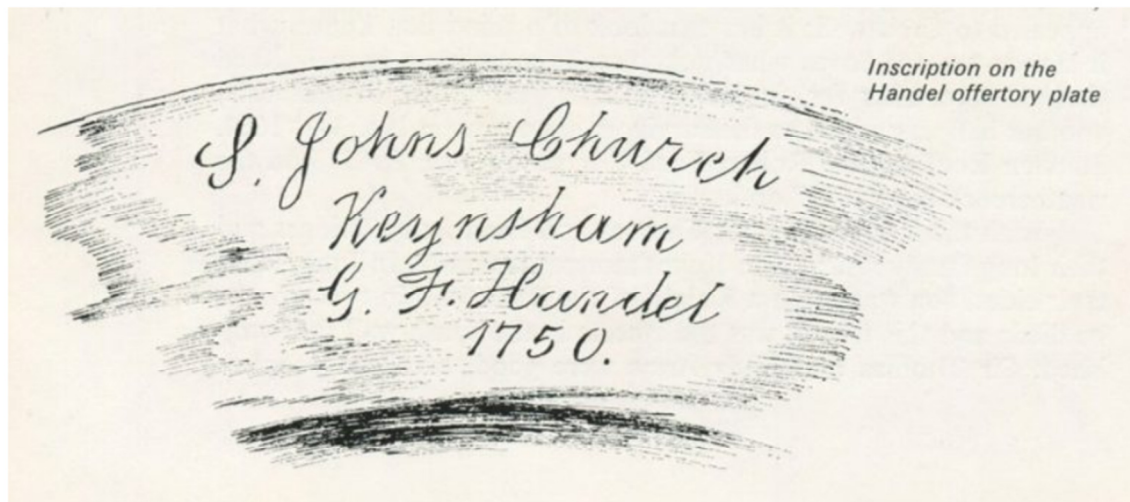 Inscription on the
Handel offertory plate
S. Johns Church
Keynsham
G. F. Handel
1750.